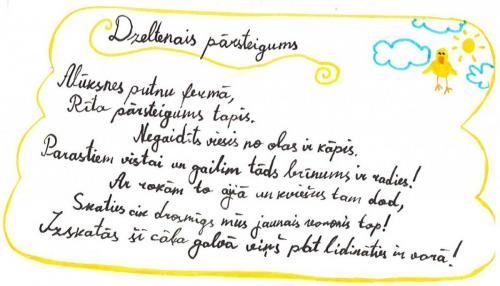 Dzeltenais pārsteigums
Alūksnes putnu fermā,
Rīta pārsteigums tapis.
Negaidīts viesis no olas ir kāpis.
Parastiem vistai un gailim tāds brīnums ir radies!
Ar rokām to aijā un kviešus tam dod,
Skaties cik drosmīgs mūs jaunais varonis top!
Izskatās šī cāļa galvā viņš pat lidināties ir varā!